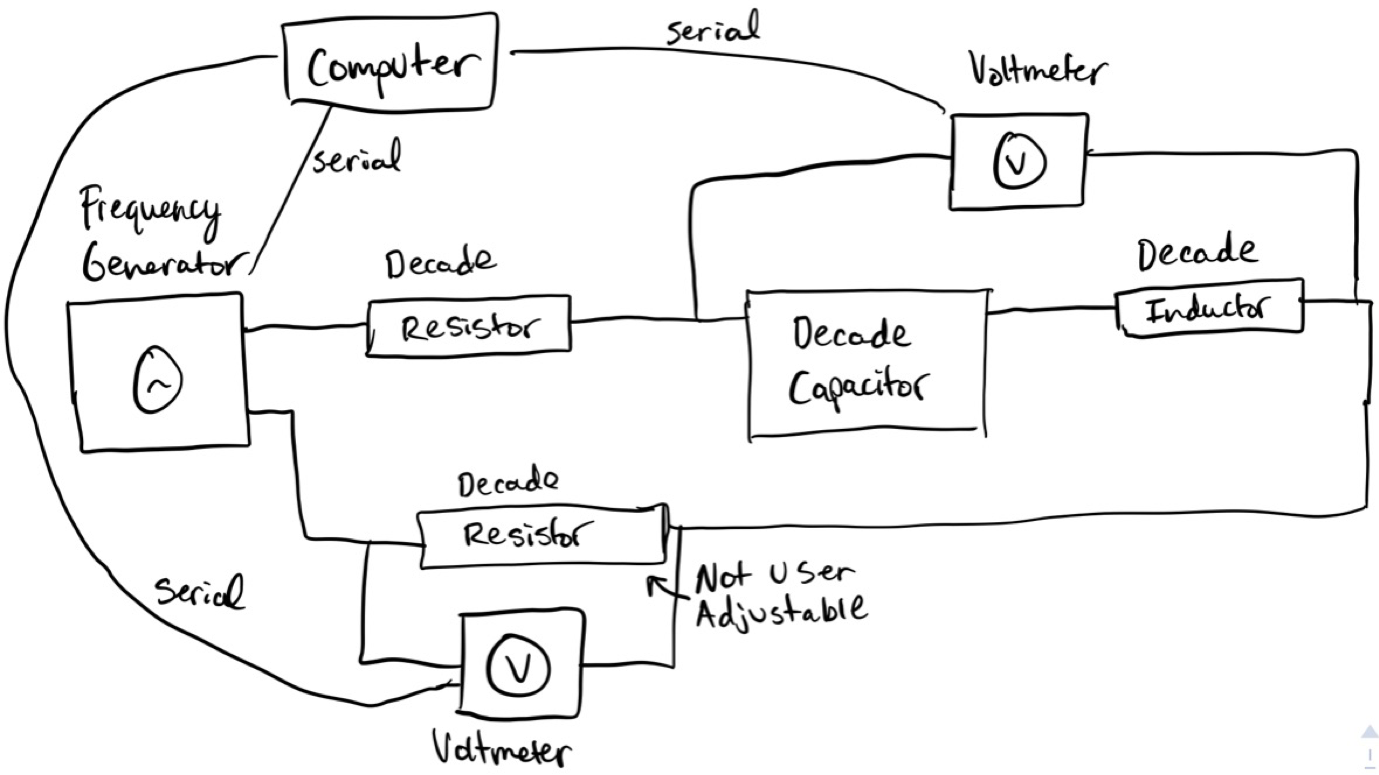 serial
Computer
Voltmeter
V
serial
Frequency
Generator
Decade
Resistor
Decade
Capacitor
Decade
Inductor
Decade
Resistor
Not User
Adjustable
serial
V
Voltmeter